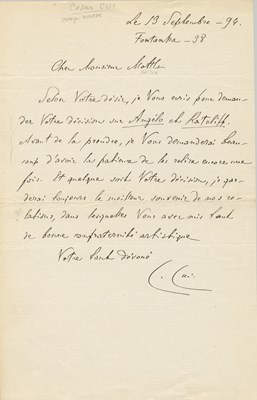 César CUI
Le 13 Septembre – 94.
Fontanka – 38
Cher Monsieur Mottl
Selon Votre désir, je Vous écris pour deman-
der Votre décision sur Angelo et Ratcliff.
Avant de la prendre, je Vous demanderai beau-
coup d'avoir la patience de les relire encore une
fois. Et quelque soit Votre décision, je gar-
derai toujours le meilleur souvenir de nos re-
lations, dans lesquelles Vous avez mis tant
de bonne confraternité artistique
Votre tant dévoué
C. Cui